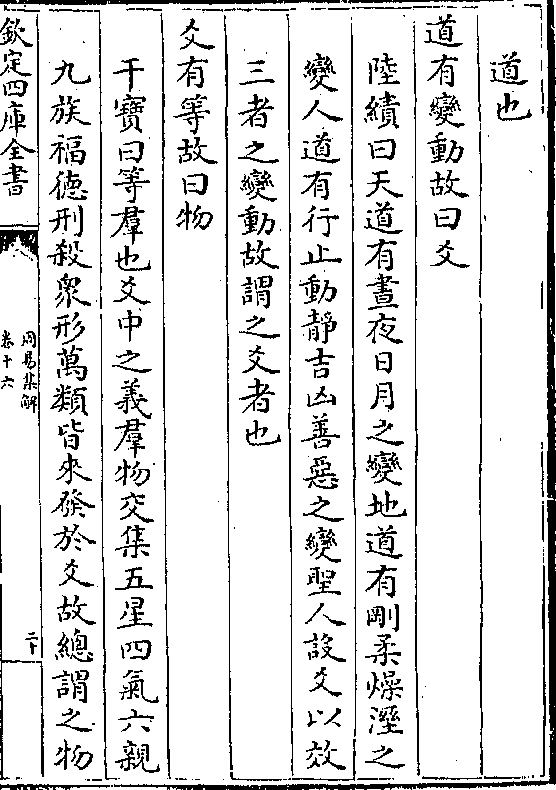 道也
道有變動故曰爻
陸績曰天道有晝夜日月之變地道有剛柔燥溼之
變人道有行止動靜吉凶善惡之變聖人設爻以效
三者之變動故謂之爻者也
爻有等故曰物
干寶曰等羣也爻中之義羣物交集五星四氣六親
九族福德刑殺衆形萬類皆來發於爻故總謂之物
欽定四庫全書
周易集解
卷十六
二十